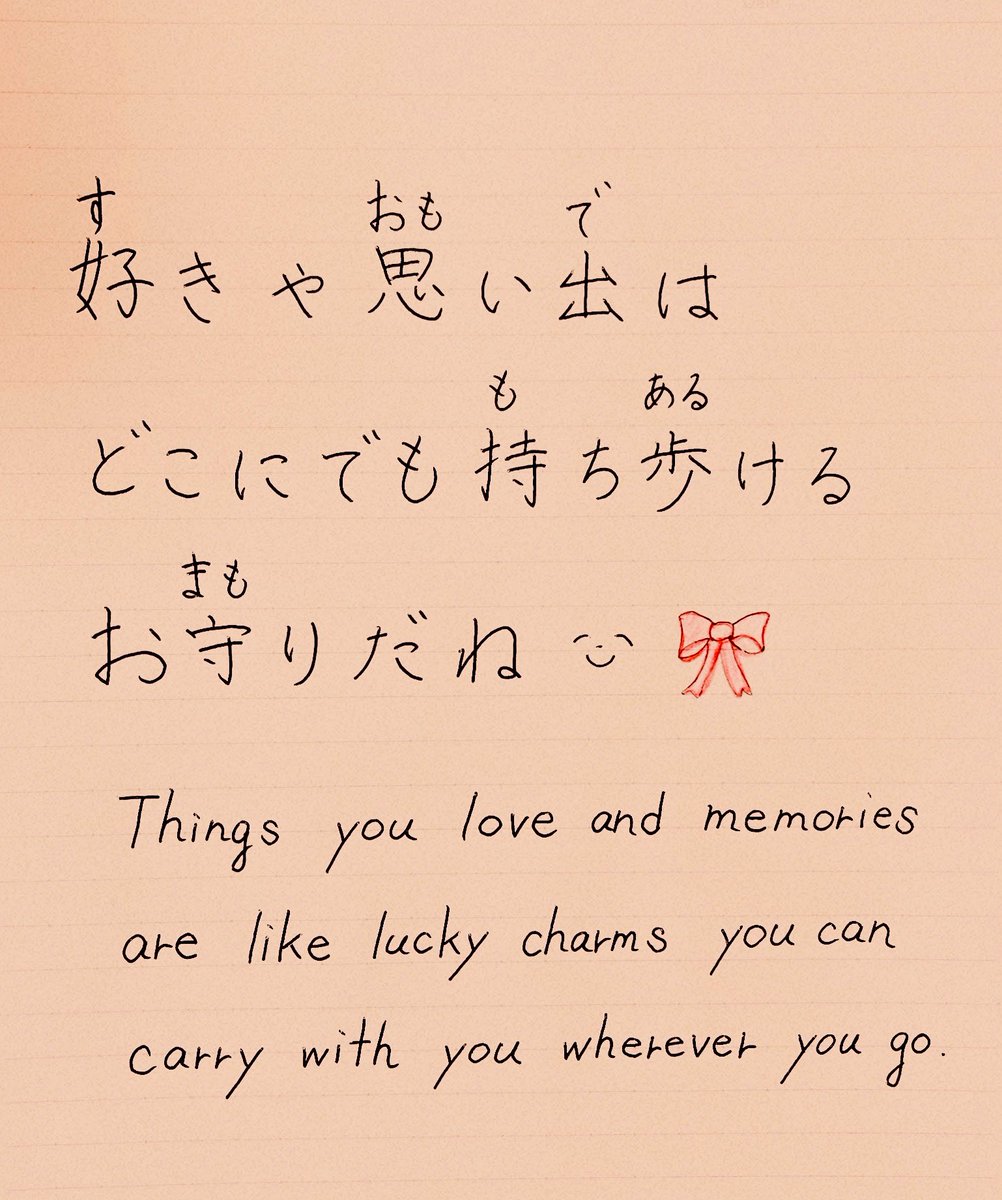 す おも で
好きや思い出は
も ある
どこにでも持ち歩ける
まも
お守りだね
Things you love and memories
are like lucky charms you can
carry with you wherever you go.